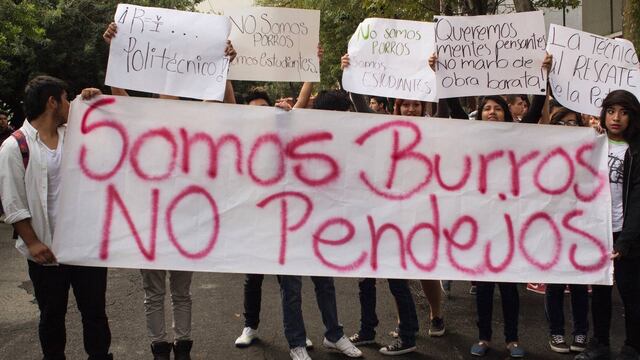 ¡REI....
Politécnico!
No Somos
PORROS
Somos estudiantes
No somos
PORROS
Somos
ESTUDIANTES
Queremos
mentes pensantes
No mano de
obra barata!
La Técnica
al RESCATE
de la
Somos Burros
NO Pendejos